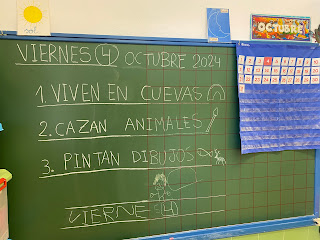 VIERNES 4 OCTUBRE 2024
OCTUBRE
1. VIVEN EN CUEVAS
2. CAZAN ANIMALES
3. PINTAN DIBUJOS
VIERNES 4